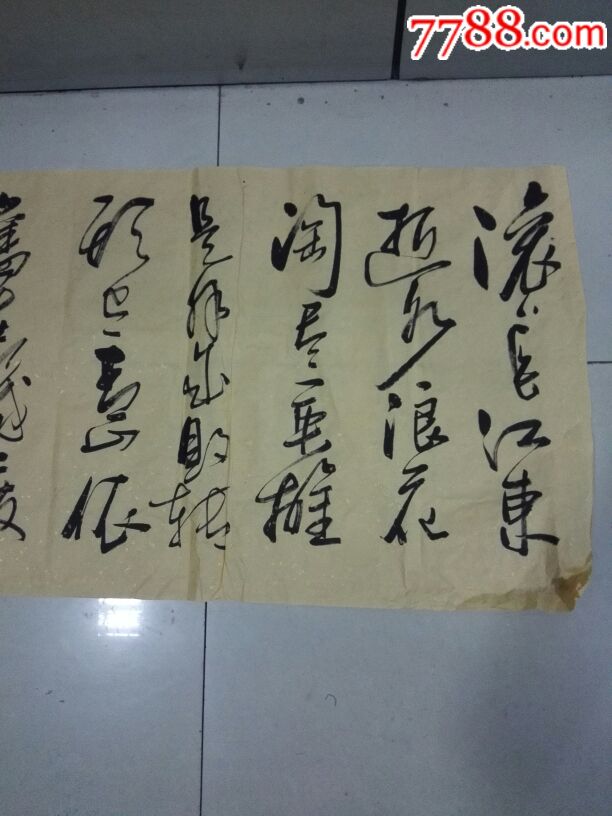 7788.com
滚〻長江東
逝水浪花
淘尽英雄
是非成敗转
头空青山依
舊在